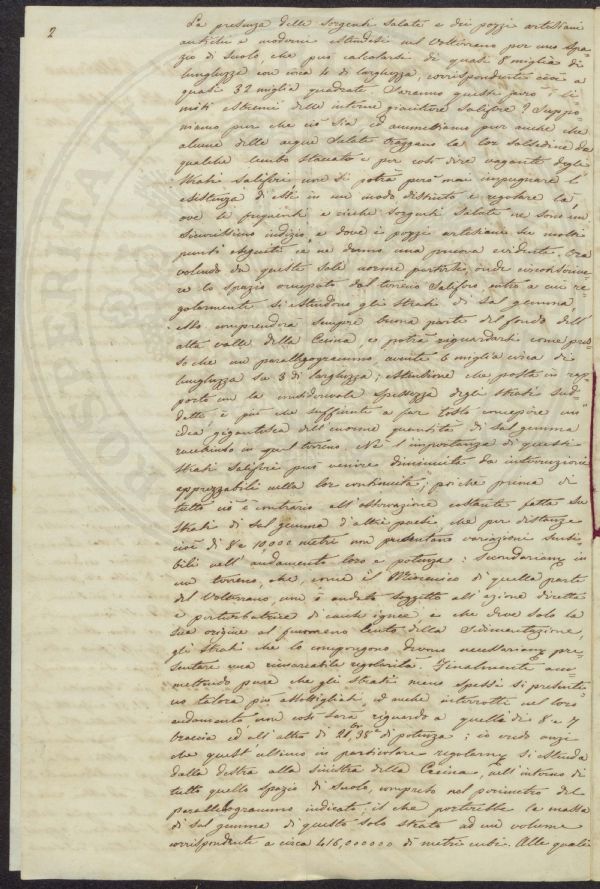 2
La presenza delle sorgenti salate e dei pozzi artesiani
antichi e moderni estendesi nel Volterrano per uno spa-
zio di suolo, che può calcolarsi di quasi 8 miglia di
lunghezza con circa 4 di larghezza, corrispondente cioè a
quasi 32 miglia quadrate. Saranno questi però i li-
miti estremi delle interne giaciture salifere? Suppo
niamo pur che ciò sia ed ammettiamo pur anche che
alcune delle acque salate traggano la lor salsedine da
qualche lembo staccato e per così dire vagante degli
strati saliferi non si potrà però mai impugnare l'
esistenza di essi in un modo distinto e regolare là,
ove le frequenti e ricche sorgenti salate ne sono un
sicurissimo indizio, e dove i pozzi artesiani su molti
punti eseguiti ce ne danno una prova evidente. Ora
volendo da queste sole norme partirsi, onde circonscrive-
re lo spazio occupato dal terreno salifero, entro a cui re-
golarmente si estendono gli strati di sal gemma
esso comprenderà sempre buona parte del fondo dell'
alta valle della Cecina, e potrà riguardarsi come pres-
so che un parallelogrammo, avente 6 miglia circa di
lunghezza su 3 di larghezza; estensione che posta in rap-
porto con la considerevole spessezza degli strati sud-
detti è più che sufficiente a far tosto concepire un'
idea gigantesca dell'enorme quantità di sal gemma
racchiuso in quel terreno. Nè l'importanza di questi
strati saliferi può venire diminuita da interruzioni
apprezzabili nella lor continuità; poi che prima di
tutto ciò è contrario all'osservazione costante fatta su
strati di sal gemma d'altri paesi, che per distanze
cioè di 8 e 10,000 metri non presentano variazioni sensi-
bili nell'andamento loro e potenza: secondariam.e in
un terreno, che, come il Miocenico di quella parte
del Volterrano, non è andato soggetto all'azione diretta
e perturbatrice di cause ignee e che deve solo la
sua origine al fenomeno lento della sedimentazione,
gli strati che lo compongono devono necessariam.e pre-
sentare una rimarcabile regolarità. Finalmente am-
mettendo pure che gli strati meno spessi si presenti-
no talora più assottigliati ed anche interrotti nel loro
andamento, non così sarà riguardo a quelli di 8 e 7
braccia ed all'altro di di potenza; io credo anzi
che quest'ultimo in particolare regolarm.e si estenda
dalla destra alla sinistra della Cecina, nell'interno di
tutto quello spazio di suolo, compreso nel perimetro del
parallelogrammo indicato; il che porterebbe la massa
di sal gemma di questo solo strato ad un volume
corrispondente a circa 416,000000 di metri cubi. Alle quali